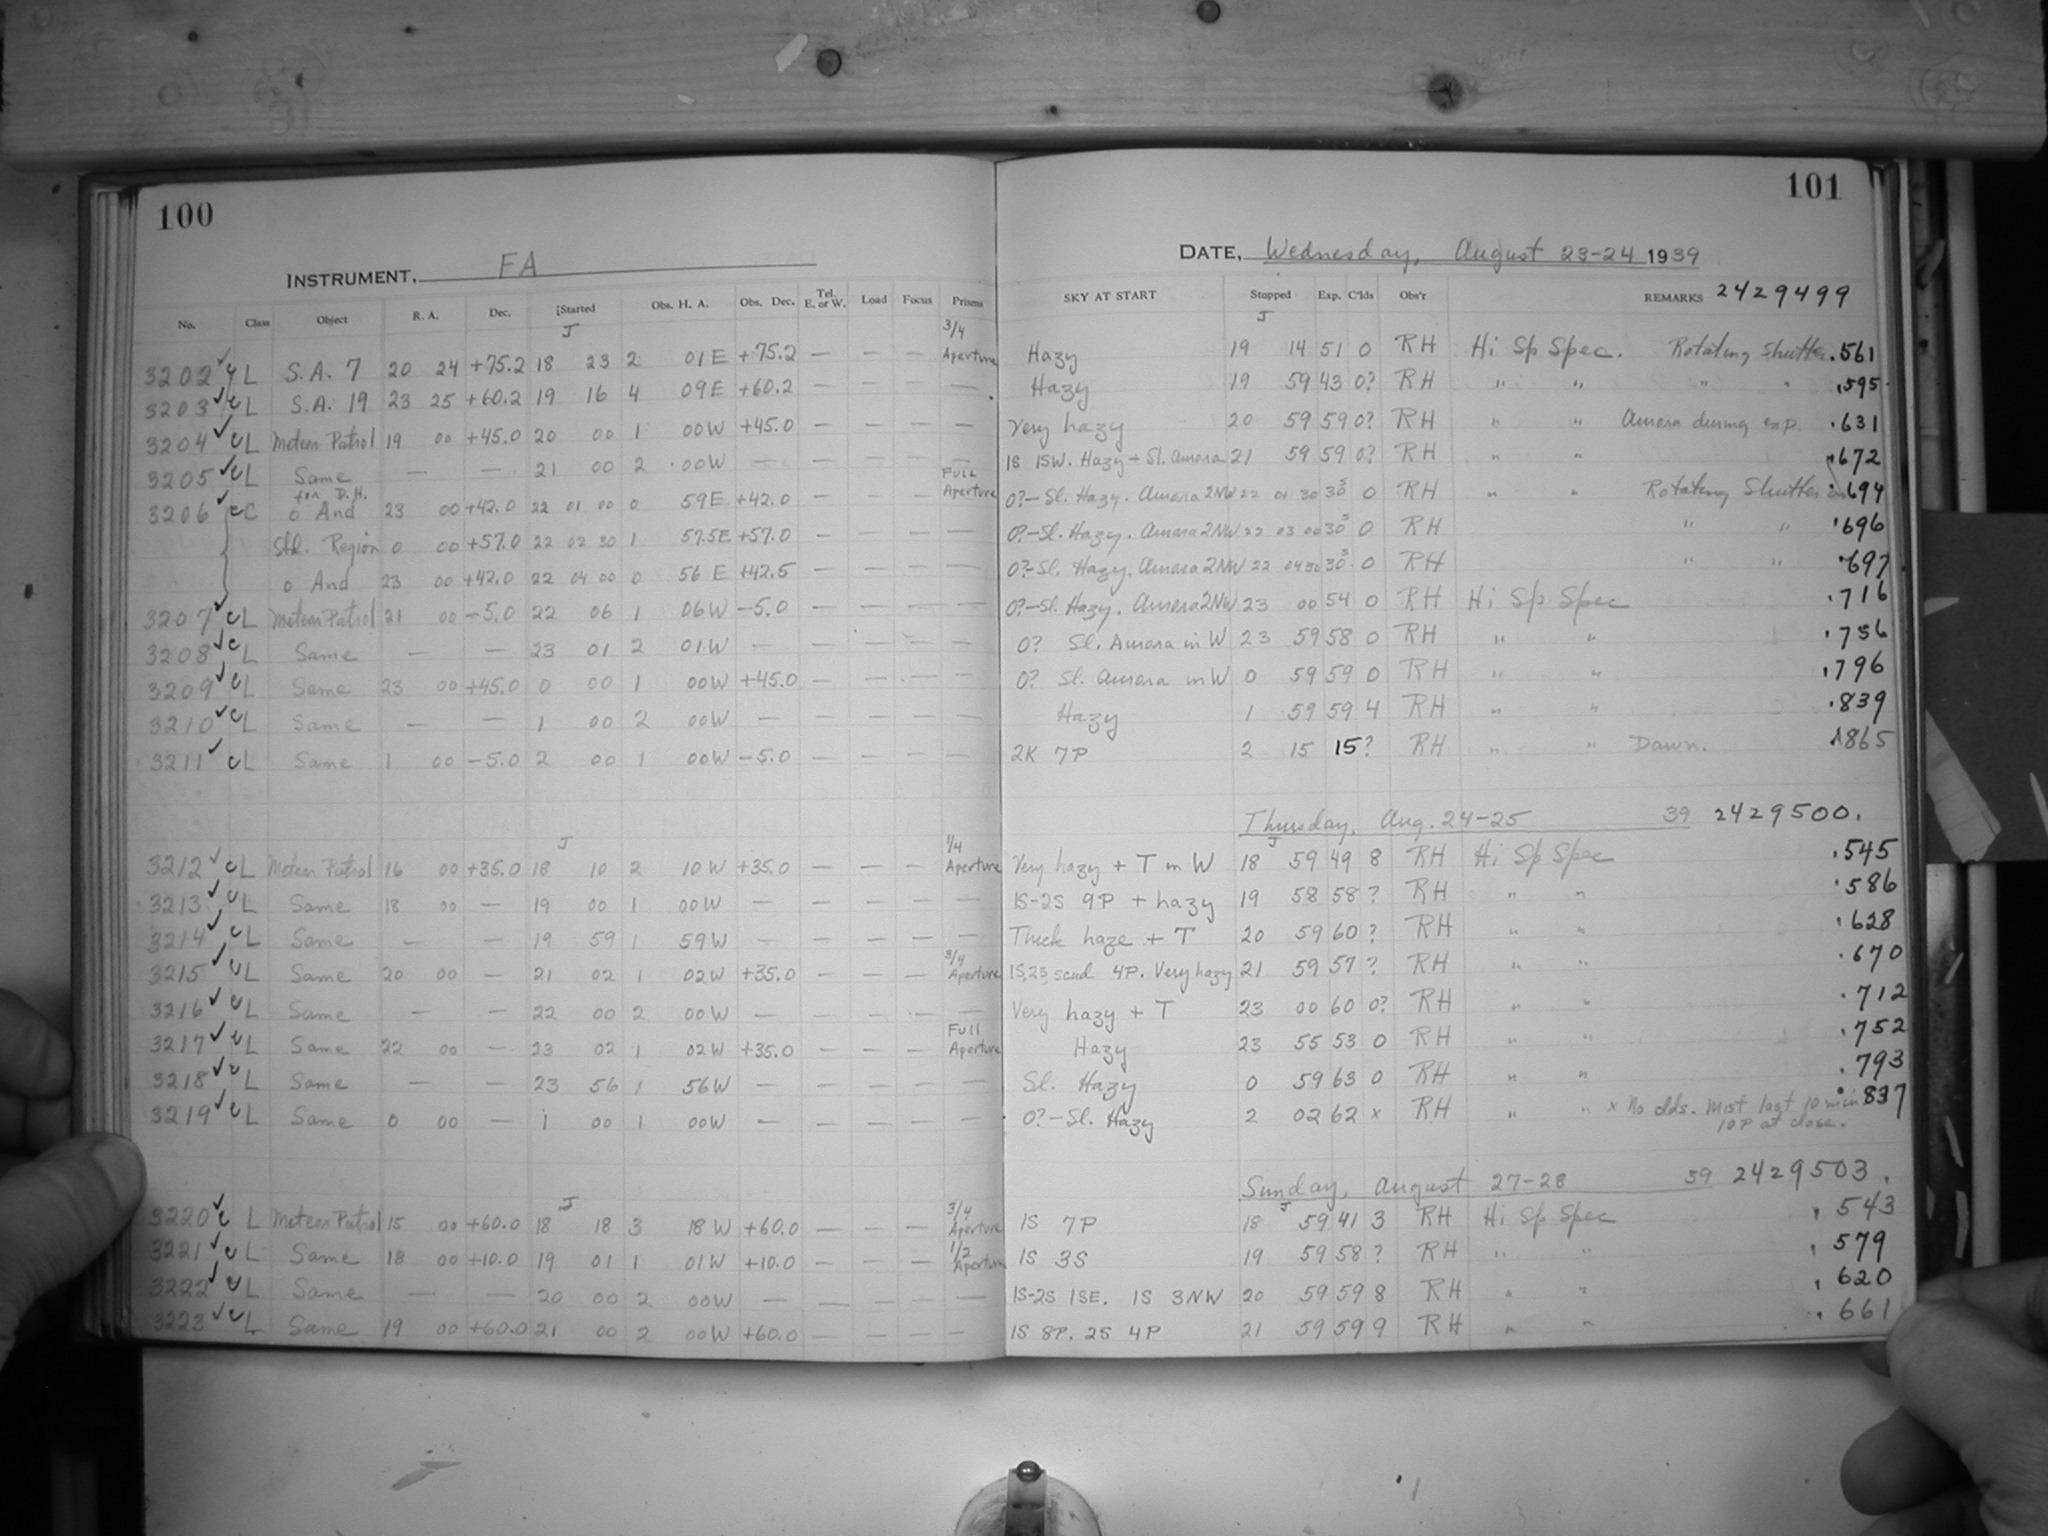 100
101
INSTRUMENT, FA
DATE, Wednesday, August 23-24 1939
No. Class Object R. A. Dec. Started Obs. H. A. Obs. Dec. Tel. E. or W. Load Focus Prisms SKY AT START Stopped Exp. C'lds Obs'r REMARKS 2429499
J 3/4 J
3202 ✓ c L S.A. 7 20 24 +75.2 18 23 2 01 E +75.2 — — — Aperture Hazy 19 14 51 0 RH Hi Sp Spec. Rotating Shutter .561
3203 ✓ c L S.A. 19 23 25 +60.2 19 16 4 09E +60.2 — — — — Hazy 19 59 43 0? RH " " " " .595
3204 ✓ c L Meteor Patrol 19 00 +45.0 20 00 1 00W +45.0 — — — — Very hazy 20 59 59 0? RH " " Aurora during exp. .631
3205 ✓ c L Same — — 21 00 2 00W — — — — — 1S 1SW. Hazy + Sl. Aurora 21 59 59 0? RH " " .672
3206 ✓ c C for D.H. o And 23 00 +42.0 22 01 00 0 59E +42.0 — — — Full Aperture 0?-Sl. Hazy. Aurora 2NW 22 01 30 30s 0 RH " " Rotating Shutter on .694
Std. Region 0 00 +57.0 22 02 30 1 57.5E +57.0 — — — — 0?-Sl. Hazy. Aurora 2NW 22 03 00 30s 0 RH " " .696
o And 23 00 +42.0 22 04 00 0 56 E +42.5 — — — — 0?-Sl. Hazy. Aurora 2NW 22 04 30 30s 0 RH " " .697
3207 ✓ c L Meteor Patrol 21 00 -5.0 22 06 1 06W -5.0 — — — — 0?-Sl. Hazy. Aurora 2NW 23 00 54 0 RH Hi Sp Spec .716
3208 ✓ c L Same — — 23 01 2 01W — — — — — 0? Sl. Aurora in W 23 59 58 0 RH " " .756
3209 ✓ c L Same 23 00 +45.0 0 00 1 00W +45.0 — — — — 0? Sl. Aurora in W 0 59 59 0 RH " " .796
3210 ✓ c L Same — — 1 00 2 00W — — — — — Hazy 1 59 59 4 RH " " .839
3211 ✓ c L Same 1 00 -5.0 2 00 1 00W -5.0 — — — — 2K 7P 2 15 15 ? RH " " Dawn. .865
Thursday, Aug. 24-25 39 2429500.
J 1/4 J
3212 ✓ c L Meteor Patrol 16 00 +35.0 18 10 2 10W +35.0 — — — Aperture Very hazy + T in W 18 59 49 8 RH Hi Sp Spec .545
3213 ✓ c L Same 18 00 — 19 00 1 00W — — — — — 1S-2S 9P + hazy 19 58 58 ? RH " " .586
3214 ✓ c L Same — — 19 59 1 59W — — — — — Thick haze + T 20 59 60 ? RH " " .628
3215 ✓ c L Same 20 00 — 21 02 1 02W +35.0 — — — 3/4 Aperture 1S,2S scud 4P. Very hazy 21 59 57 ? RH " " .670
3216 ✓ c L Same — — 22 00 2 00W — — — — — Very hazy + T 23 00 60 0? RH " " .712
3217 ✓ c L Same 22 00 — 23 02 1 02W +35.0 — — — Full Aperture Hazy 23 55 53 0 RH " " .752
3218 ✓ c L Same — — 23 56 1 56W — — — — — Sl. Hazy 0 59 63 0 RH " " .793
3219 ✓ c L Same 0 00 — 1 00 1 00W — — — — — 0?-Sl. Hazy 2 02 62 x RH " " x No clds. Mist last 10 min .837
10P at close.
Sunday, August 27-28 39 2429503.
J 3/4 J
3220 ✓ c L Meteor Patrol 15 00 +60.0 18 18 3 18W +60.0 — — — Aperture 1S 7P 18 59 41 3 RH Hi Sp Spec .543
3221 ✓ c L Same 18 00 +10.0 19 01 1 01W +10.0 — — — 1/2 Aperture 1S 3S 19 59 58 ? RH " " .579
3222 ✓ c L Same — — 20 00 2 00W — — — — — 1S-2S 1SE. 1S 3NW 20 59 59 8 RH " " .620
3223 ✓ c L Same 19 00 +60.0 21 00 2 00W +60.0 — — — — 1S 8P. 2S 4P 21 59 59 9 RH " " .661